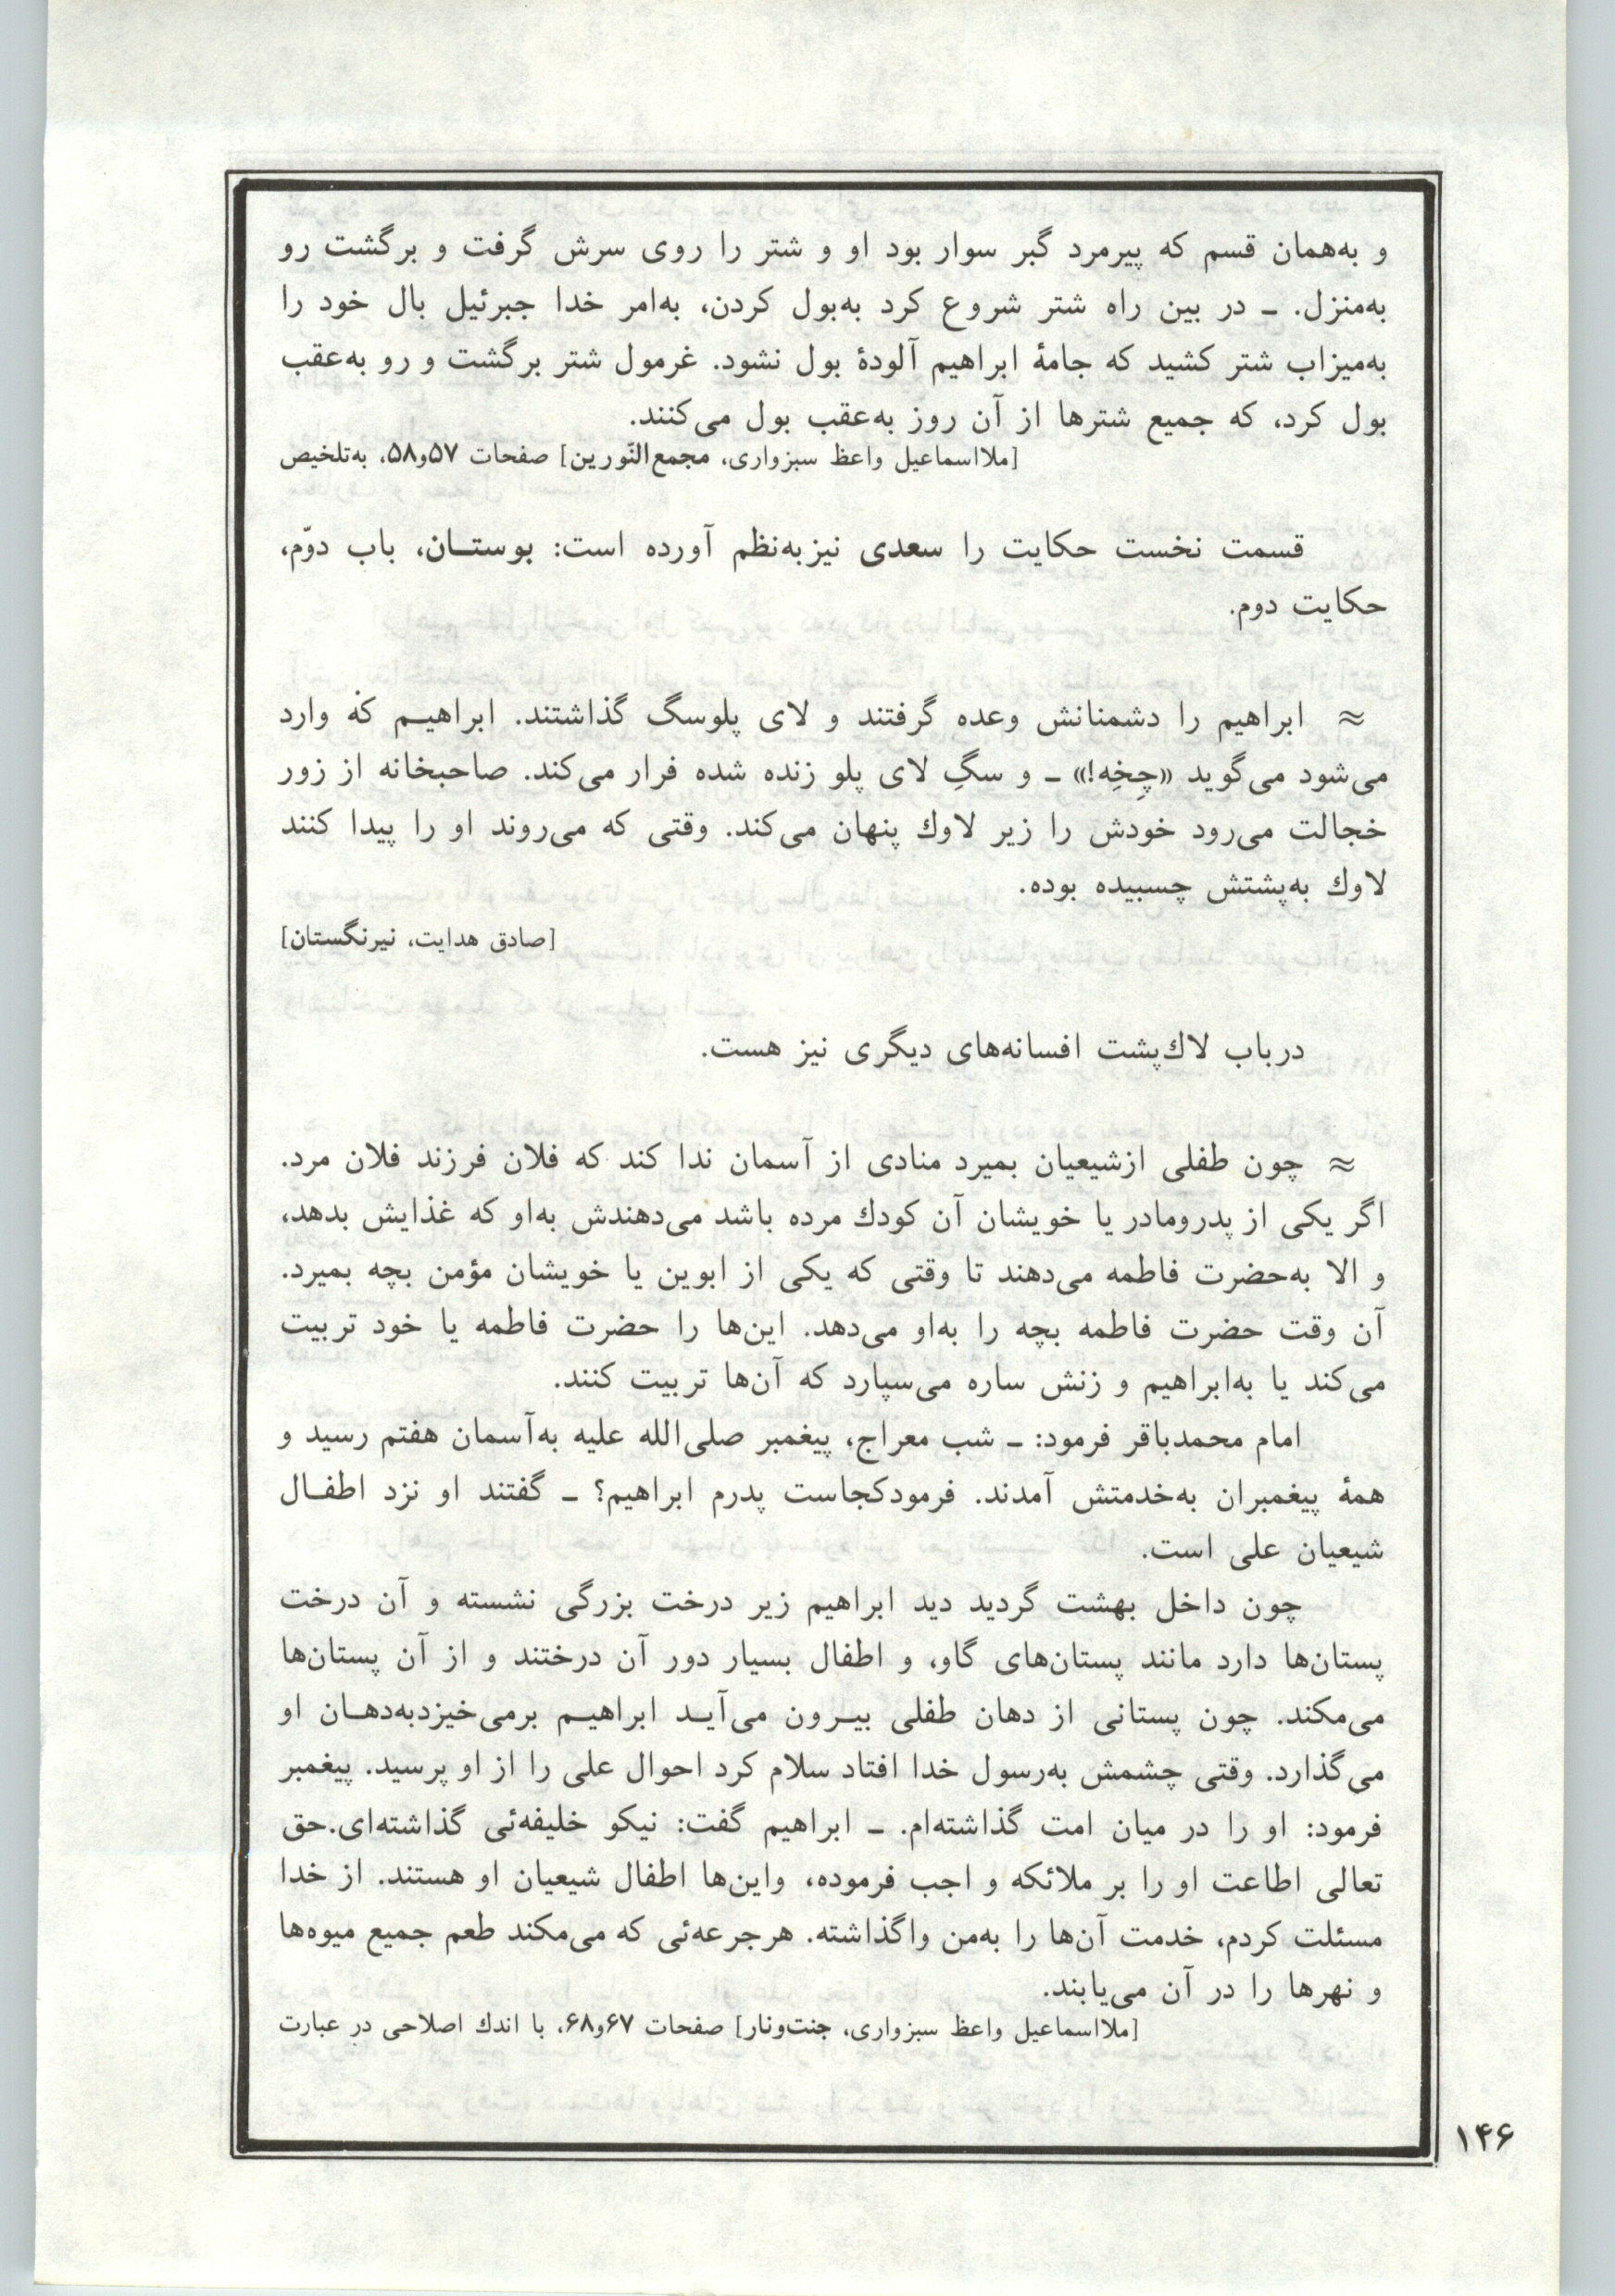 و به‌همان قسم که پیرمرد گبر سوار بود او و شتر را روی سرش گرفت و برگشت رو
به‌منزل. ـ در بین راه شتر شروع کرد به‌بول کردن، به‌امر خدا جبرئیل بال خود را
به‌میزاب شتر کشید که جامهٔ ابراهیم آلودهٔ بول نشود. غرمول شتر برگشت و رو به‌عقب
بول کرد، که جمیع شترها از آن روز به‌عقب بول می‌کنند.
[ملااسماعیل واعظ سبزواری، مجمع‌النّورین] صفحات ۵۷و۵۸، به‌تلخیص
قسمت نخست حکایت را سعدی نیزبه‌نظم آورده است: بوستــان، باب دوّم،
حکایت دوم.
≈ ابراهیم را دشمنانش وعده گرفتند و لای پلوسگ گذاشتند. ابراهیـم که وارد
می‌شود می‌گوید «چِخِه!» ـ و سگِ لای پلو زنده شده فرار می‌کند. صاحبخانه از زور
خجالت می‌رود خودش را زیر لاوك پنهان می‌کند. وقتی که می‌روند او را پیدا کنند
لاوك به‌پشتش چسبیده بوده.
[صادق هدایت، نیرنگستان]
درباب لاك‌پشت افسانه‌های دیگری نیز هست.
≈ چون طفلی ازشیعیان بمیرد منادی از آسمان ندا کند که فلان فرزند فلان مرد.
اگر یکی از پدرومادر یا خویشان آن کودك مرده باشد می‌دهندش به‌او که غذایش بدهد،
و الا به‌حضرت فاطمه می‌دهند تا وقتی که یکی از ابوین یا خویشان مؤمن بچه بمیرد.
آن وقت حضرت فاطمه بچه را به‌او می‌دهد. این‌ها را حضرت فاطمه یا خود تربیت
می‌کند یا به‌ابراهیم و زنش ساره می‌سپارد که آن‌ها تربیت کنند.
امام محمدباقر فرمود: ـ شب معراج، پیغمبر صلی‌الله علیه به‌آسمان هفتم رسید و
همهٔ پیغمبران به‌خدمتش آمدند. فرمودکجاست پدرم ابراهیم؟ ـ گفتند او نزد اطفـال
شیعیان علی است.
چون داخل بهشت گردید دید ابراهیم زیر درخت بزرگی نشسته و آن درخت
پستان‌ها دارد مانند پستان‌های گاو، و اطفال بسیار دور آن درختند و از آن پستان‌ها
می‌مکند. چون پستانی از دهان طفلی بیـرون می‌آیـد ابراهیـم برمی‌خیزدبه‌دهـان او
می‌گذارد. وقتی چشمش به‌رسول خدا افتاد سلام کرد احوال علی را از او پرسید. پیغمبر
فرمود: او را در میان امت گذاشته‌ام. ـ ابراهیم گفت: نیکو خلیفه‌ئی گذاشته‌ای.حق
تعالی اطاعت او را بر ملائکه و اجب فرموده، واین‌ها اطفال شیعیان او هستند. از خدا
مسئلت کردم، خدمت آن‌ها را به‌من واگذاشته. هرجرعه‌ئی که می‌مکند طعم جمیع میوه‌ها
و نهرها را در آن می‌یابند.
[ملااسماعیل واعظ سبزواری، جنت‌ونار] صفحات ۶۷و۶۸، با اندك اصلاحی در عبارت
۱۴۶